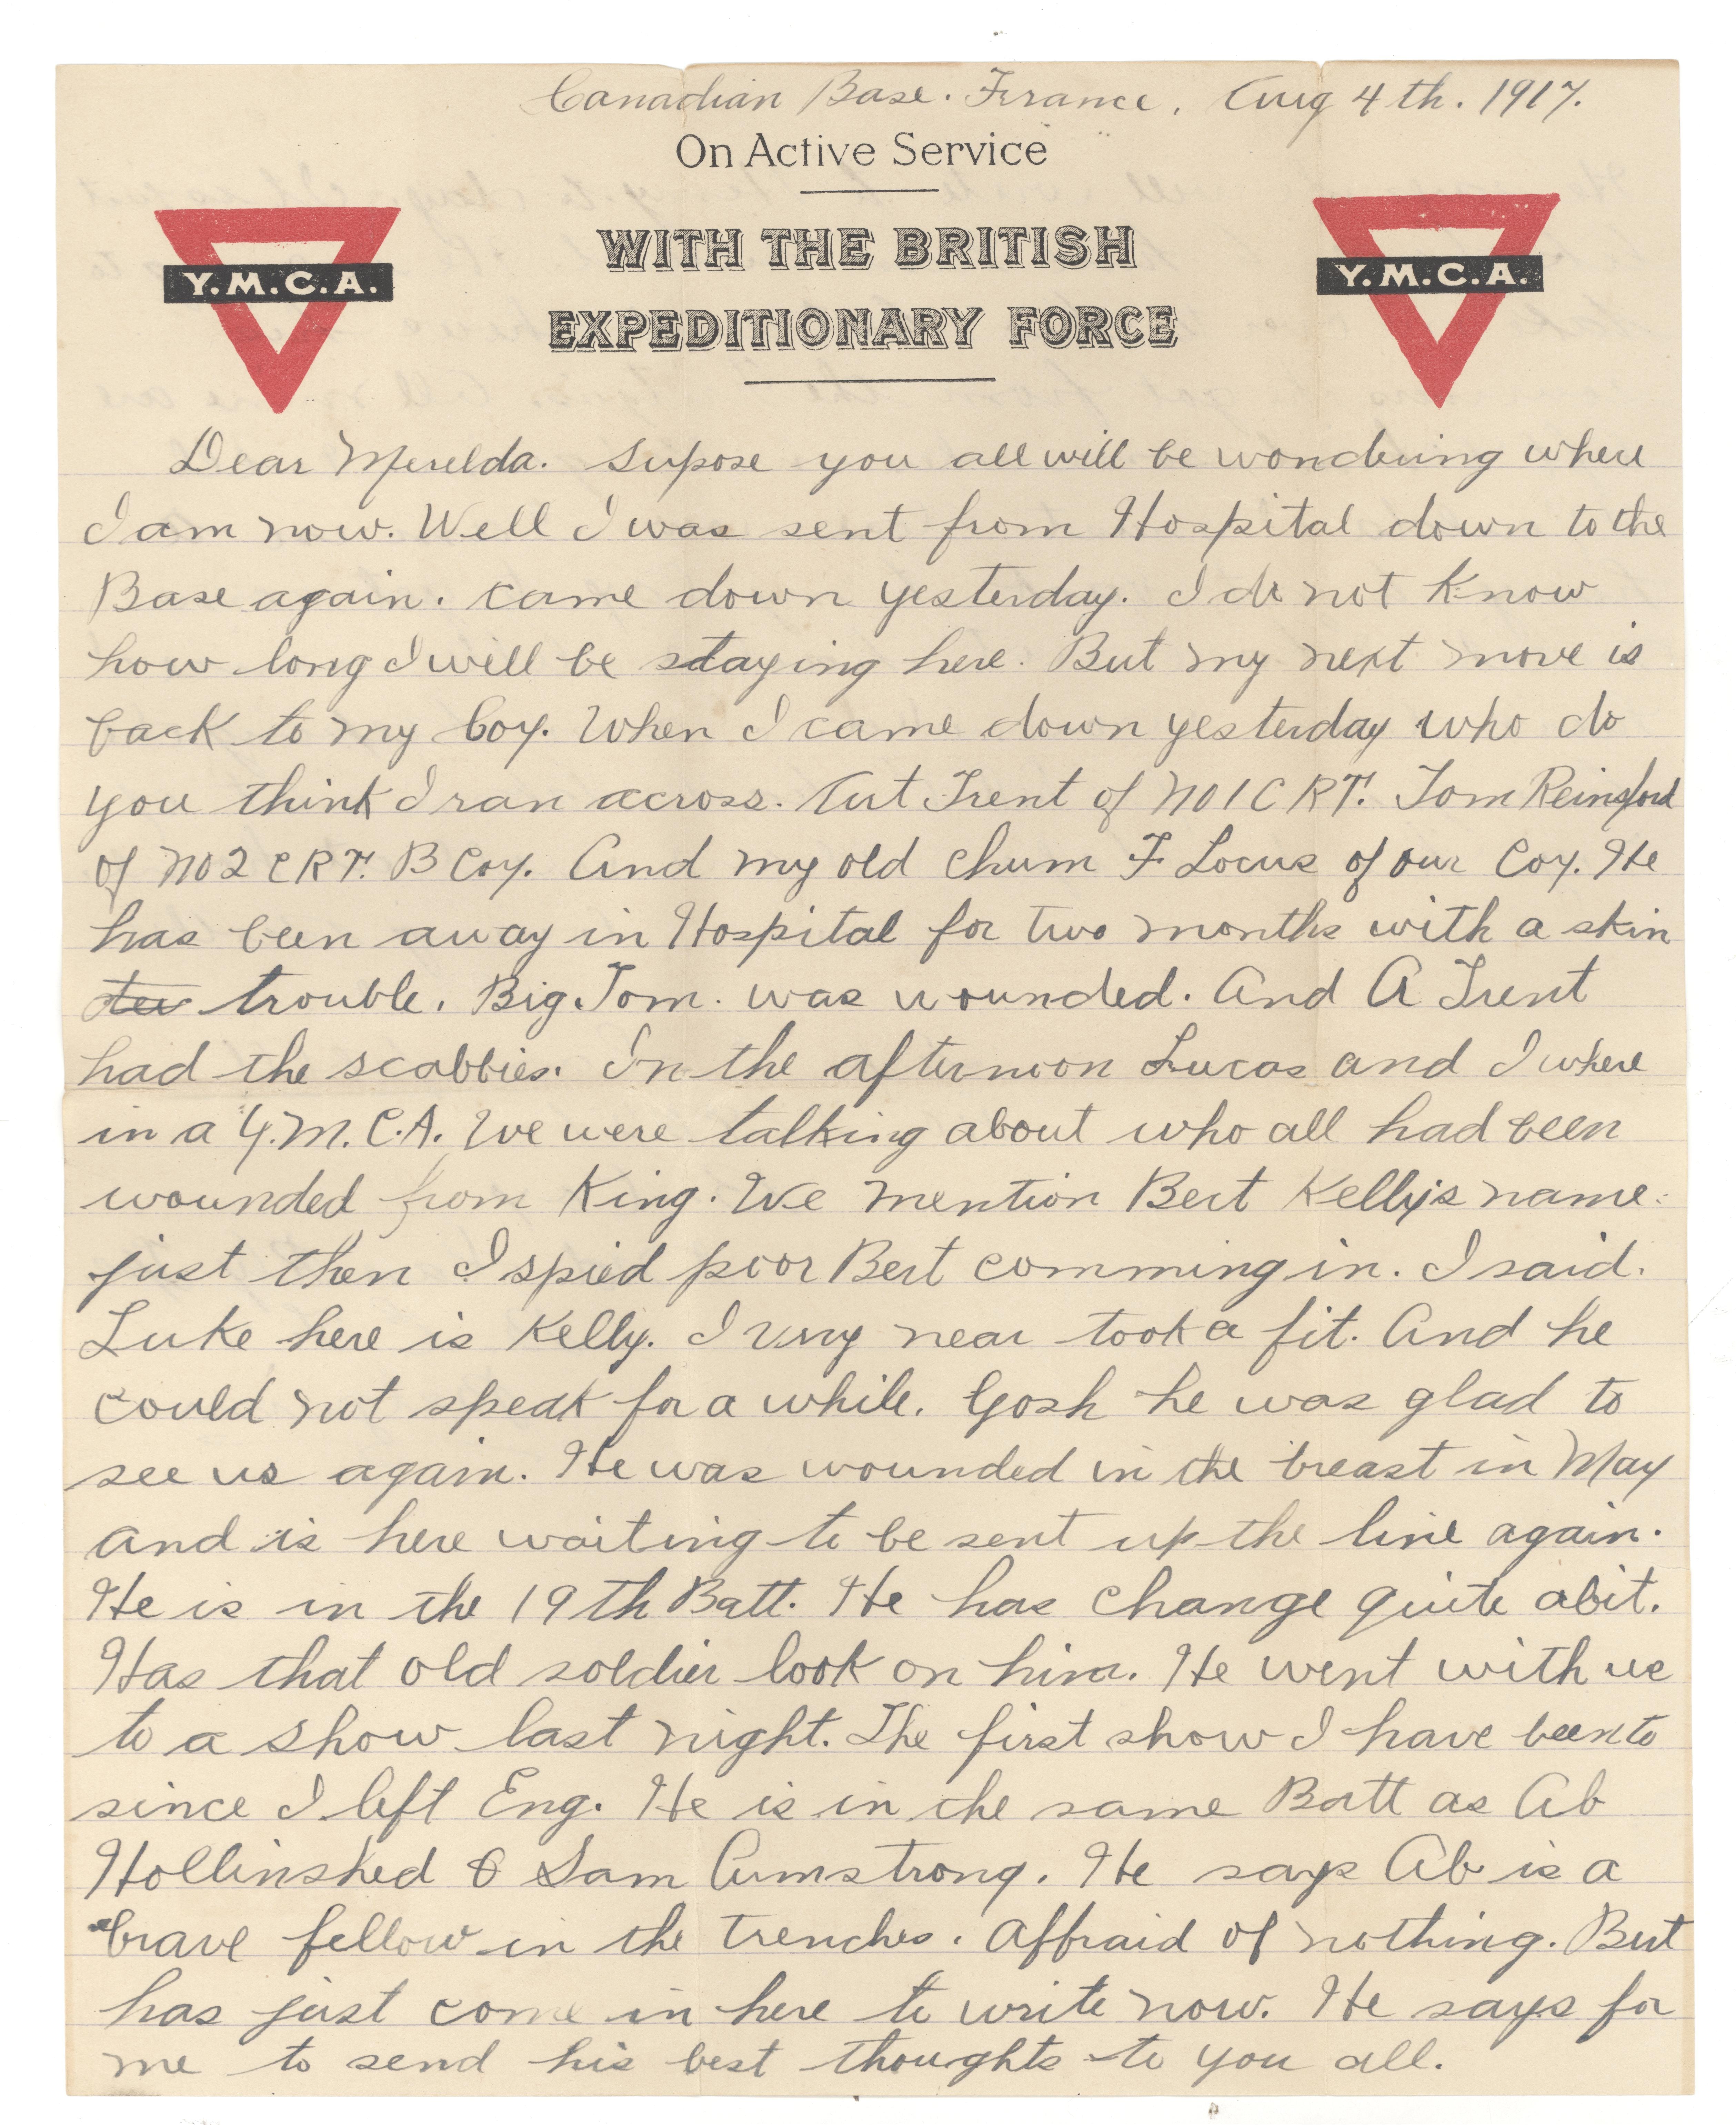 Canadian Base. France. Aug 4th. 1917.
On Active Service
WITH THE BRITISH
EXPEDITIONARY FORCE
Y.M.C.A.
Y.M.C.A.
Dear Merelda. Supose you all will be wondering where
I am now. Well I was sent from Hospital down to the
Base again. came down yesterday. I do not know
how long I will be staying here. But my next move is
back to my Coy. When I came down yesterday who do
you think I ran across. Art Trent of No 1 C R T. Tom Reinsford
of No 2 C R T. B Coy. And my old chum F Locus of our Coy. He
has been away in Hospital for two months with a skin
trouble. Big Tom. was wounded. And A Trent
had the scabbies. In the afternoon Lucas and I where
in a Y.M.C.A. We were talking about who all had been
wounded from King. We mention Bert Kelly's name.
just then I spied poor Bert comming in. I said.
Luke here is Kelly. I very near took a fit. And he
could not speak for a while. Gosh he was glad to
see us again. He was wounded in the breast in May
and is here waiting to be sent up the line again.
He is in the 19th Batt. He has change quite abit.
Has that old soldier look on him. He went with us
to a show last night. The first show I have been to
since I left Eng. He is in the same Batt as Ab
Hollinshed & Sam Armstrong. He says Ab is a
brave fellow in the trenches. Affraid of nothing. Bert
has just come in here to write now. He says for
me to send his best thoughts to you all.